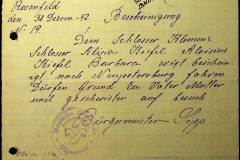 Rosenfeld
den 31 Dezem-42. Bescheinigung
N: 19.
Dem Schlosser Klemenz
Schlosser Alizia Kiefel Aloisius
Kiefel Barbara wirt beschei-
nigt nach Neupetersburg fahren
Dürfen Grund zu Vater Mutter
und geschwister auf besuch
Bürgermeister